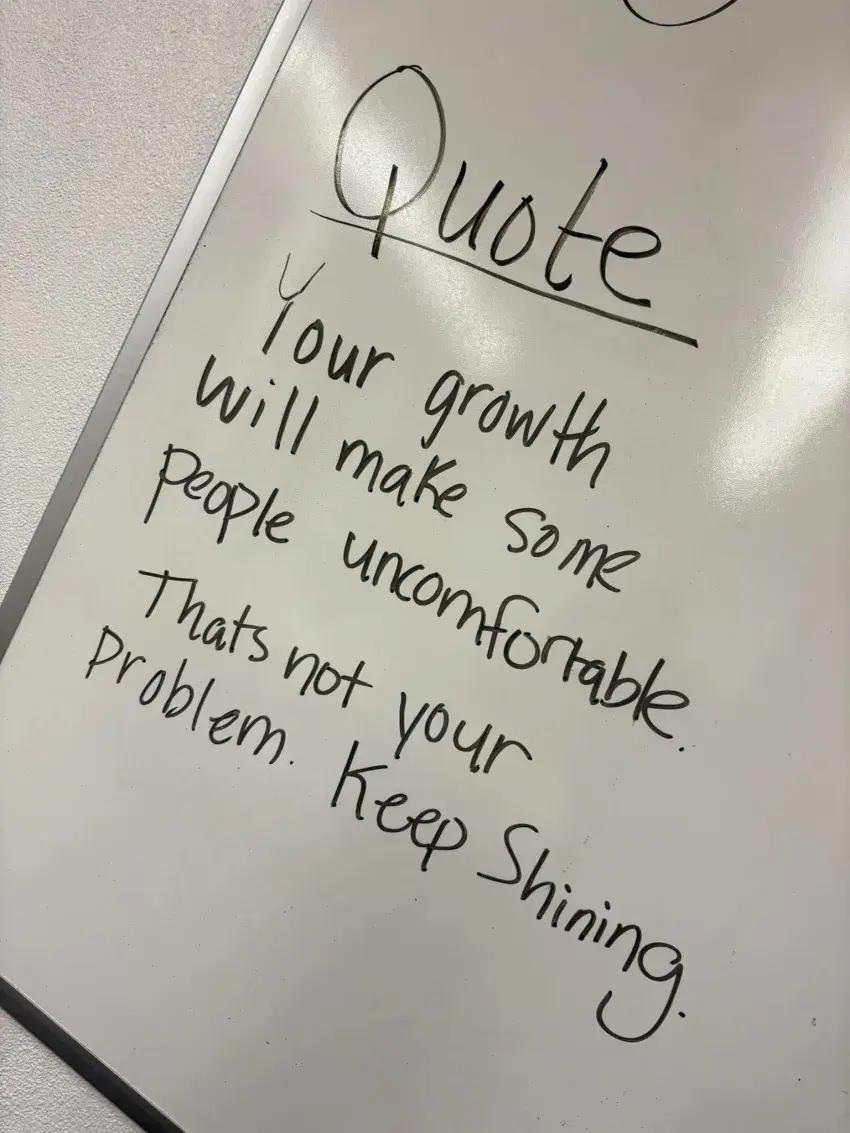 Quote
Your growth
will make some
people uncomfortable.
Thats not your
problem. Keep Shining.